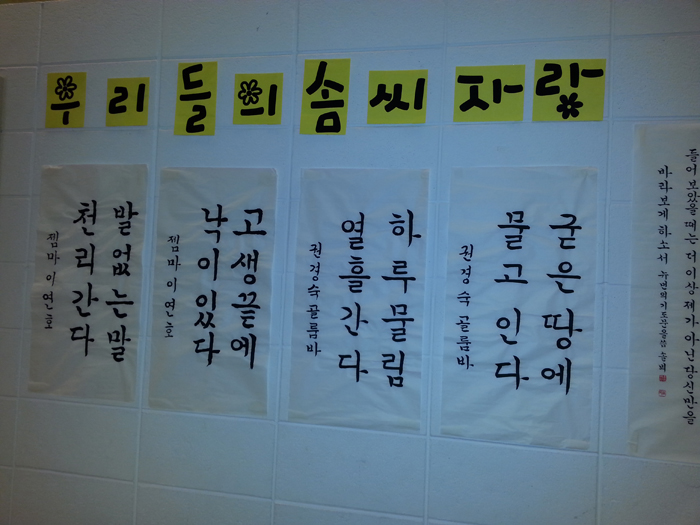 우리들의 솜씨자랑
발없는말
천리간다
젬마 이연호
고생끝에
낙이있다
젬마 이연호
하루물림
열흘간다
권경숙 골룸바
굳은땅에
물고인다
권경숙 골룸바
들어 보았을 때는 더 이상 제가 아닌 당신만을
바라보게 하소서